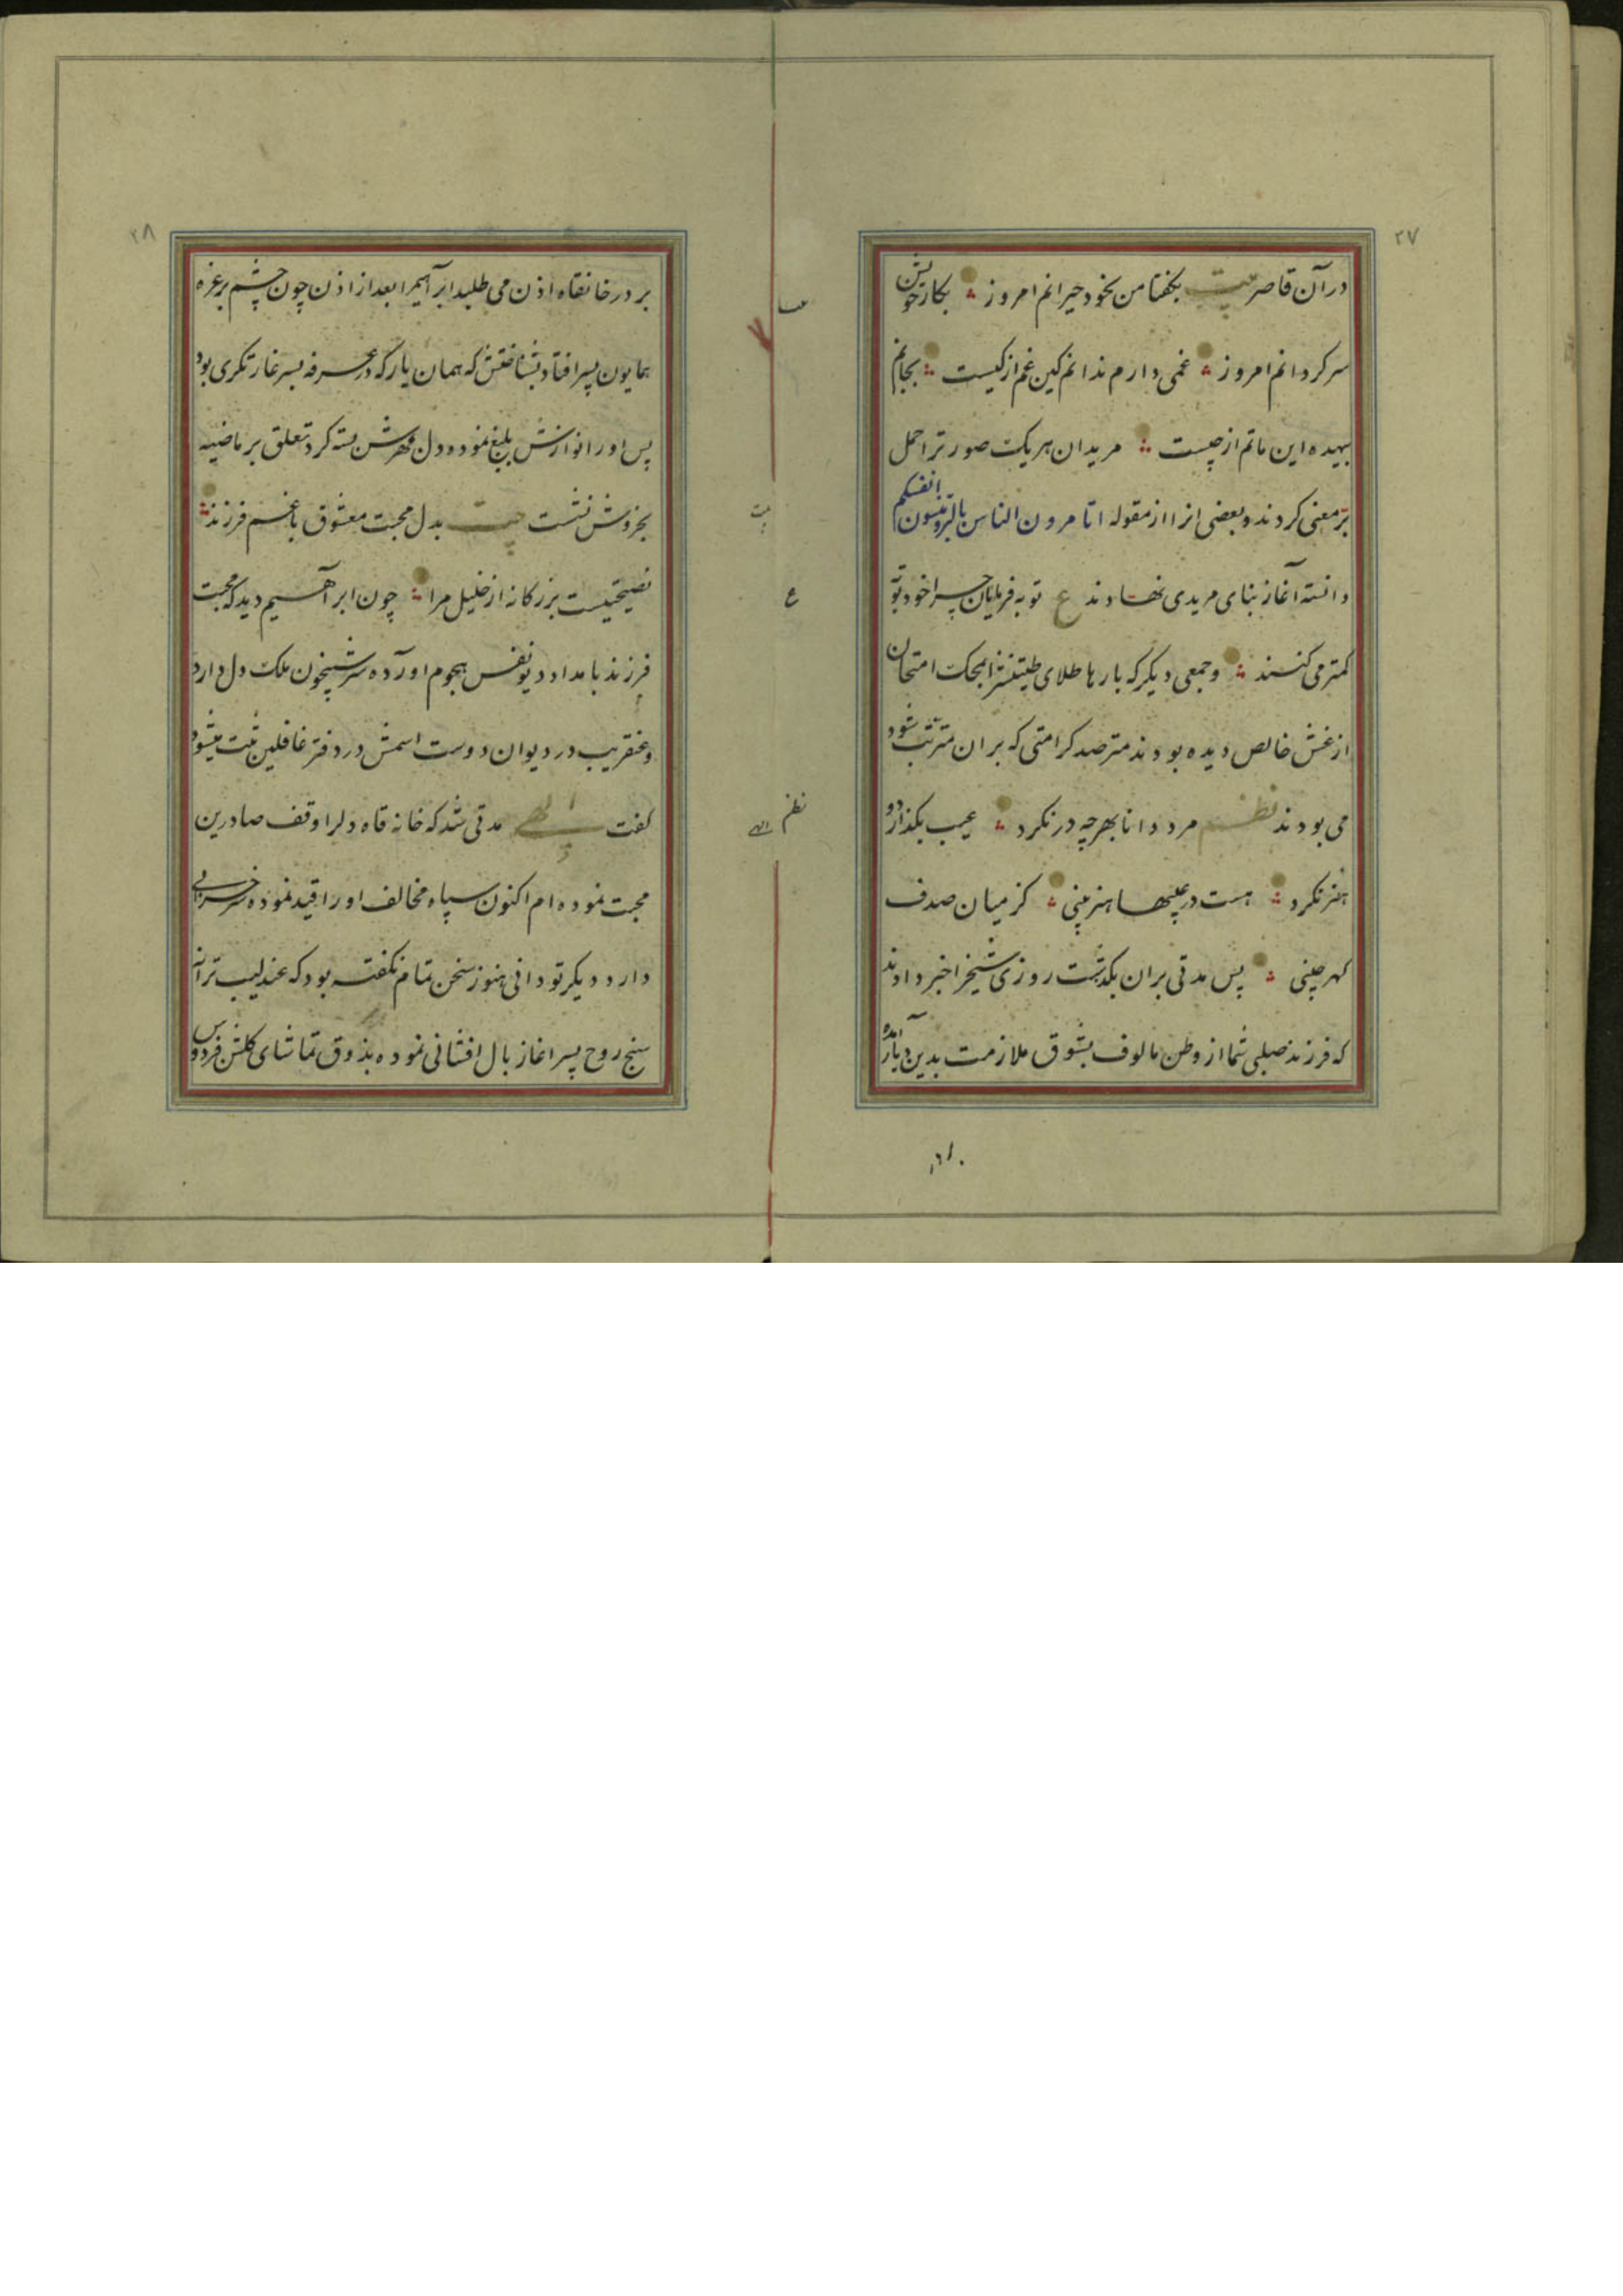 ۲۷
در آن قاصر بیت بگفتا من بخود حیرانم امروز بکار خویش
سرکردانم امروز غمی دارم ندانم کین غم از کیست بجانم
بیهده این ماتم از چیست مریدان هریک صورترا حمل
بر معنی کردند و بعضی انرا از مقوله اتامرون الناس بالبر و تنسون انفسکم
دانسته آغاز بنای مریدی نهادند ع توبه فرمایان چرا خود توبه
کمتر می کنند و جمعی دیگر که بارها طلای طینتش را بمحک امتحان
از غش خالص دیده بودند مترصد کرامتی که بران مترتب شود
می بودند نظم مرد دانا بهر چه در نگرد عیب بگذارد و
هنر نگرد هست در عیبها هنر بینی کز میان صدف
گهر چینی پس مدتی بران بگذشت روزی شیخ را خبر دادند
که فرزند صلبی شما از وطن مالوف بشوق ملازمت بدین دیار آمده
بیت
ع
نظم
الهی
۲۸
بر در خانقاه اذن می طلبد ابراهیم را بعد از اذن چون چشم بر غره
همایون پسر افتاد بشناختش که همان یار که در عرفه بسر غارتگری بود
پس او را نوازش بلیغ نموده و دل بمهرش بسته کرد تعلق بر ماضیه
بخروش نشست بیت بدل محبت معشوق یا غم فرزند
نصیحتیست بزرگانه از خلیل مرا چون ابراهیم دید که محبت
فرزند بامداد دیو نفس هجوم اورده سر شبیخون ملک دل دارد
و عنقریب در دیوان دوست اسمش در دفتر غافلین ثبت میشود
گفت الهی مدتی شد که خانه قاه دلرا وقف صادرین
محبت نموده ام اکنون سپاه مخالف او را قید نموده سر خرابی
دارد دیگر تو دانی هنوز سخن تمام نگفته بود که عندلیب ترانه
سنج روح پسر اغاز بال افشانی نموده بذوق تماشای گلشن فردوس